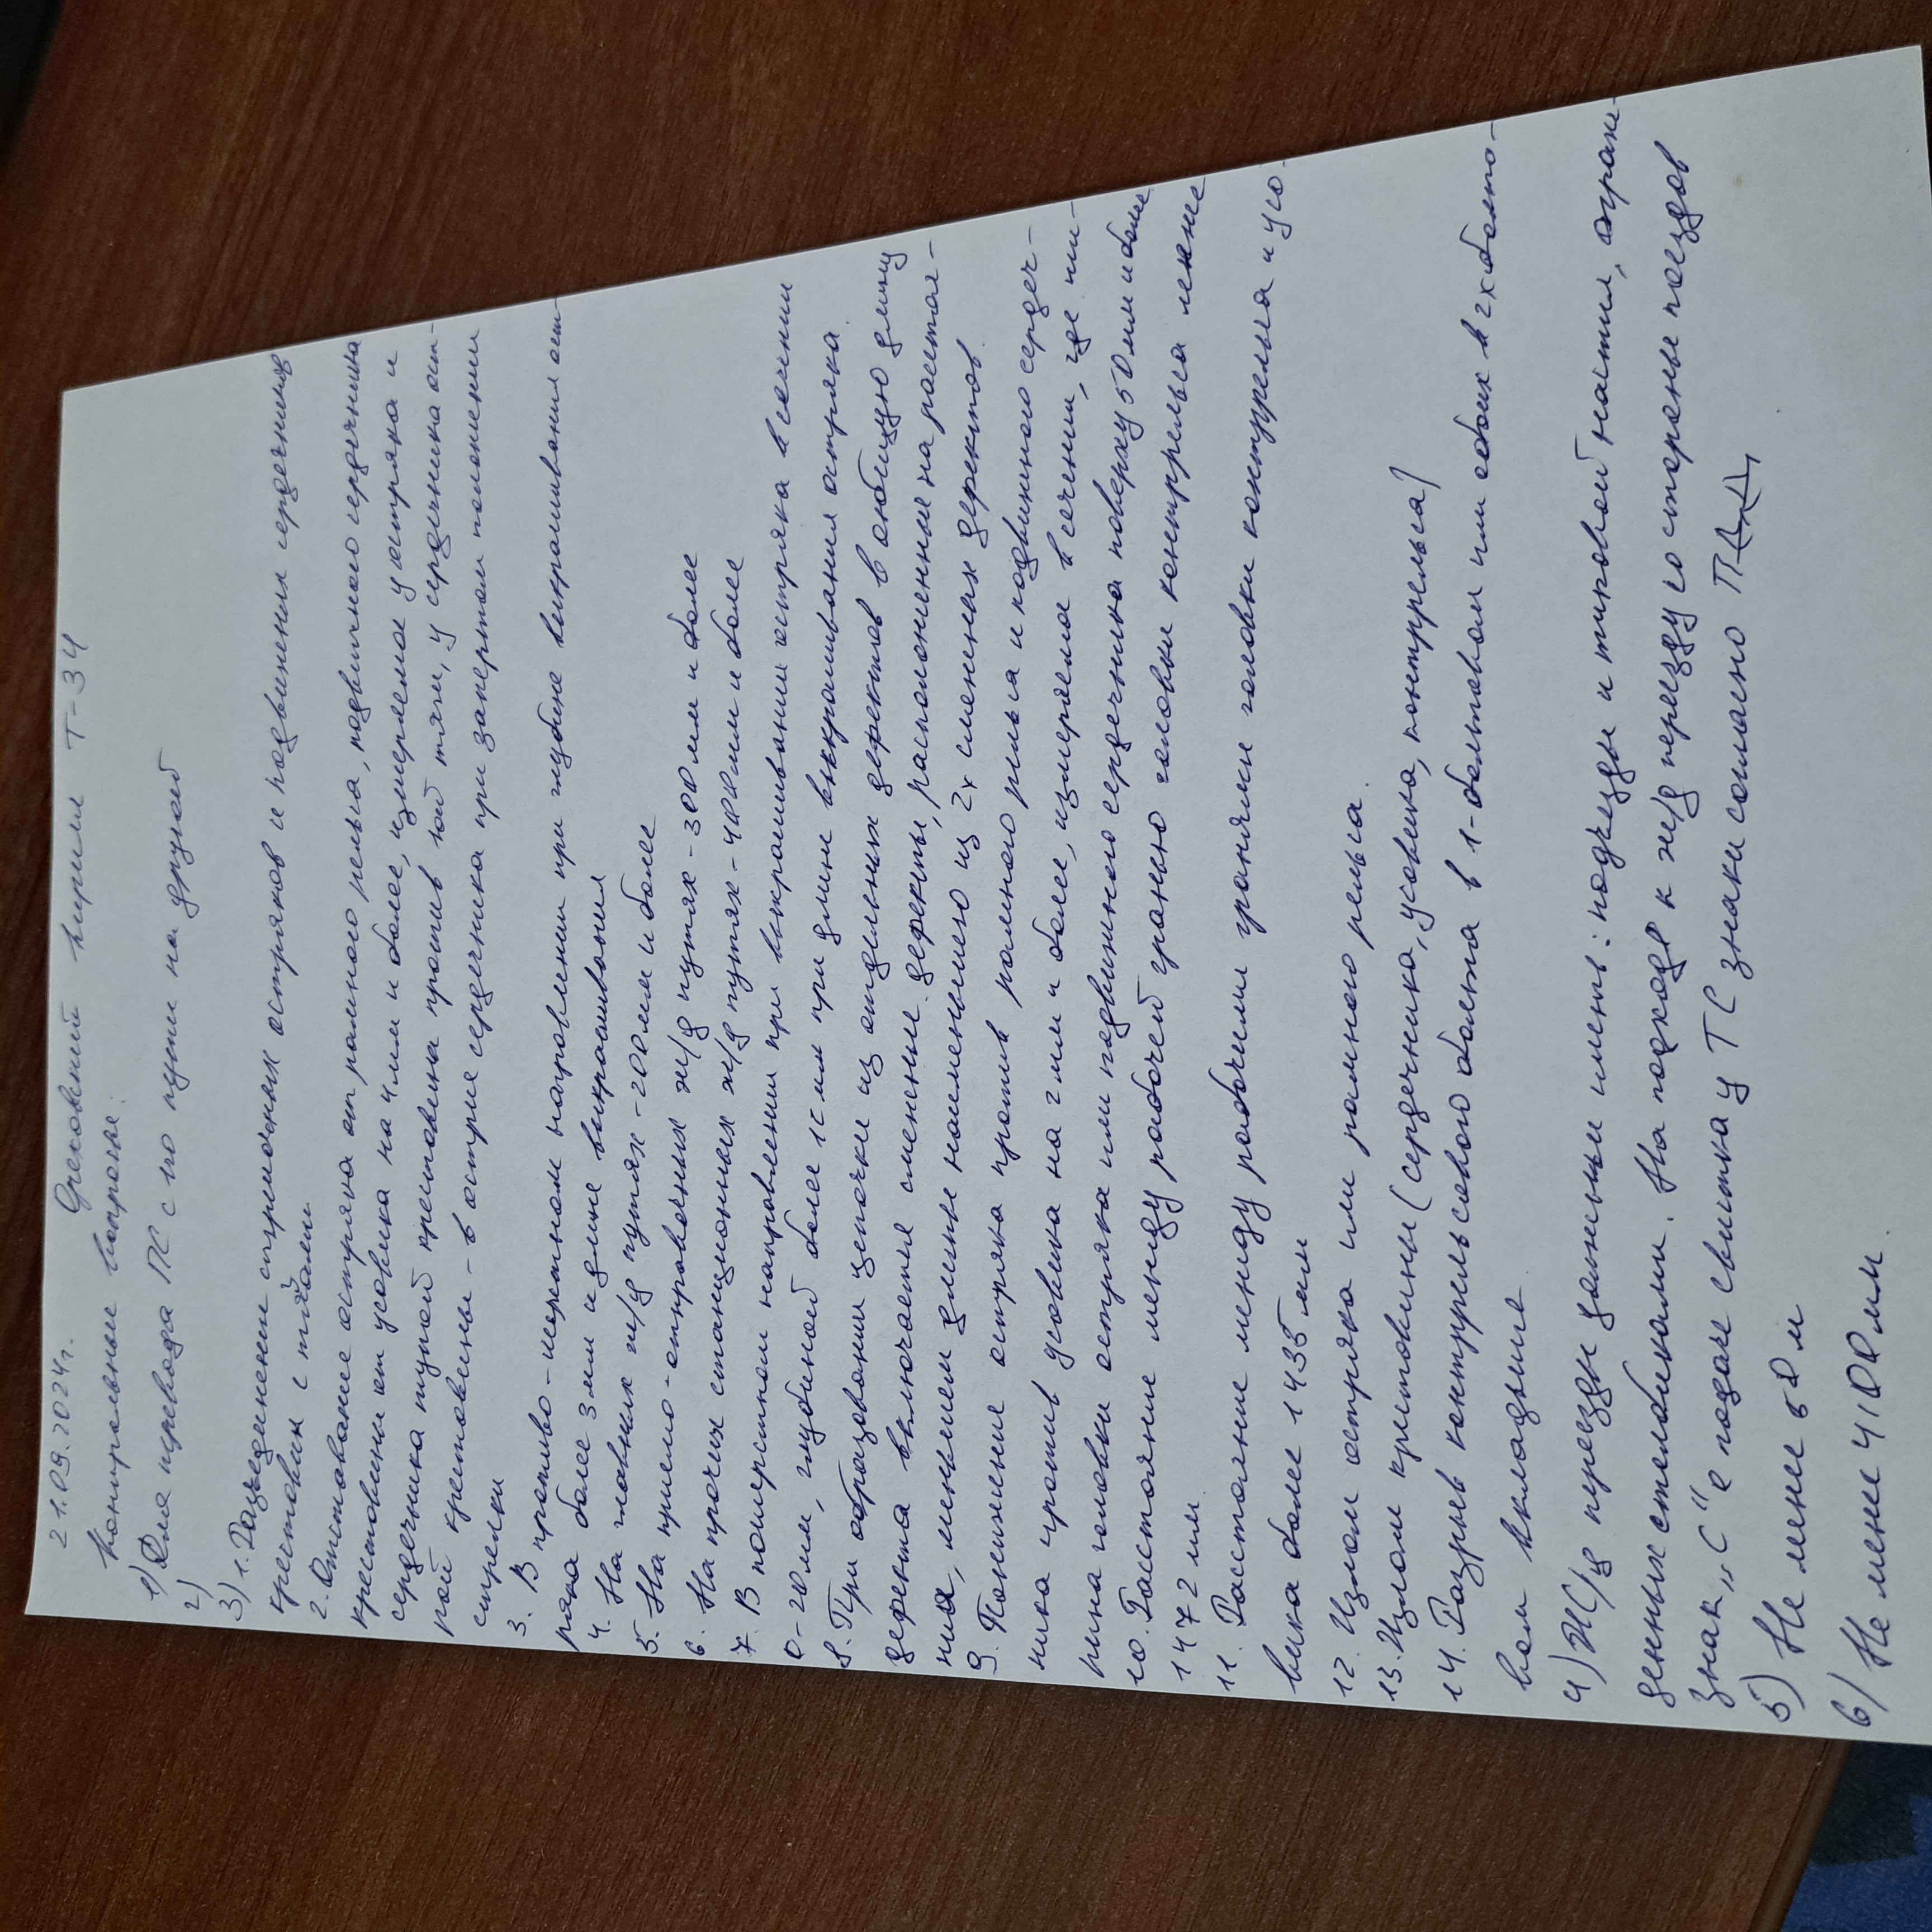 21.09.2024г. Греховский Кирилл Т-34
Контрольные вопросы:
1) Для перевода ПС с 1го пути на другой
2)
3) 1. Разъединении стрелочных остряков и подвижных сердечников
крестовин с тягами
2. Отставание остряка от рамного рельса, подвижного сердечника
крестовины от усовика на 4мм и более, измеряемое у остряка и
сердечника тупой крестовины против 1ой тяги, у сердечника ост-
рой крестовины - в острие сердечника при запертом положении
стрелки
3. В противо-шерстном направлении при глубине выкрашивания ост-
ряка более 3мм и длине выкрашивания
4. На главных ж/д путях - 200мм и более
5. На приемо-отправочных ж/д путях - 300мм и более
6. На прочих станционных ж/д путях - 400мм и более
7. В пошерстном направлении при выкрашивании остряка в сечении
0-20мм, глубиной более 15мм при длине выкрашивания остряка.
8. При образовании цепочки из отдельных дефектов в общую длину
дефекта включаются смежные дефекты, расположенные на расстоя-
нии, меньшем длины наименьшего из 2х смежных дефектов.
9. Понижение остряка против рамного рельса и подвижного сердеч-
ника против усовика на 2мм и более, измеряемое в сечении, где ши-
рина головки остряка или подвижного сердечника поверху 50мм и более
10. Расстояние между рабочей гранью головки контррельса менее
1472мм.
11. Расстояние между рабочими гранями головки контррельса и усо-
вика более 1435мм
12. Излом остряка или рамного рельса.
13. Излом крестовины (сердечника, усовика, контррельса)
14. Разрыв контррельсового болта в 1-болтовом или обоих в 2хболто-
вом вкладыше
4) Ж/д переезды должны иметь: подъезды и типовой настил, ограж-
денных столбиками. На подходе к ж/д переезду со стороны поездов
знак „С" о подаче свистка у ТС знаки согласно ПДД
5) Не менее 50м
6) Не менее 4100мм.